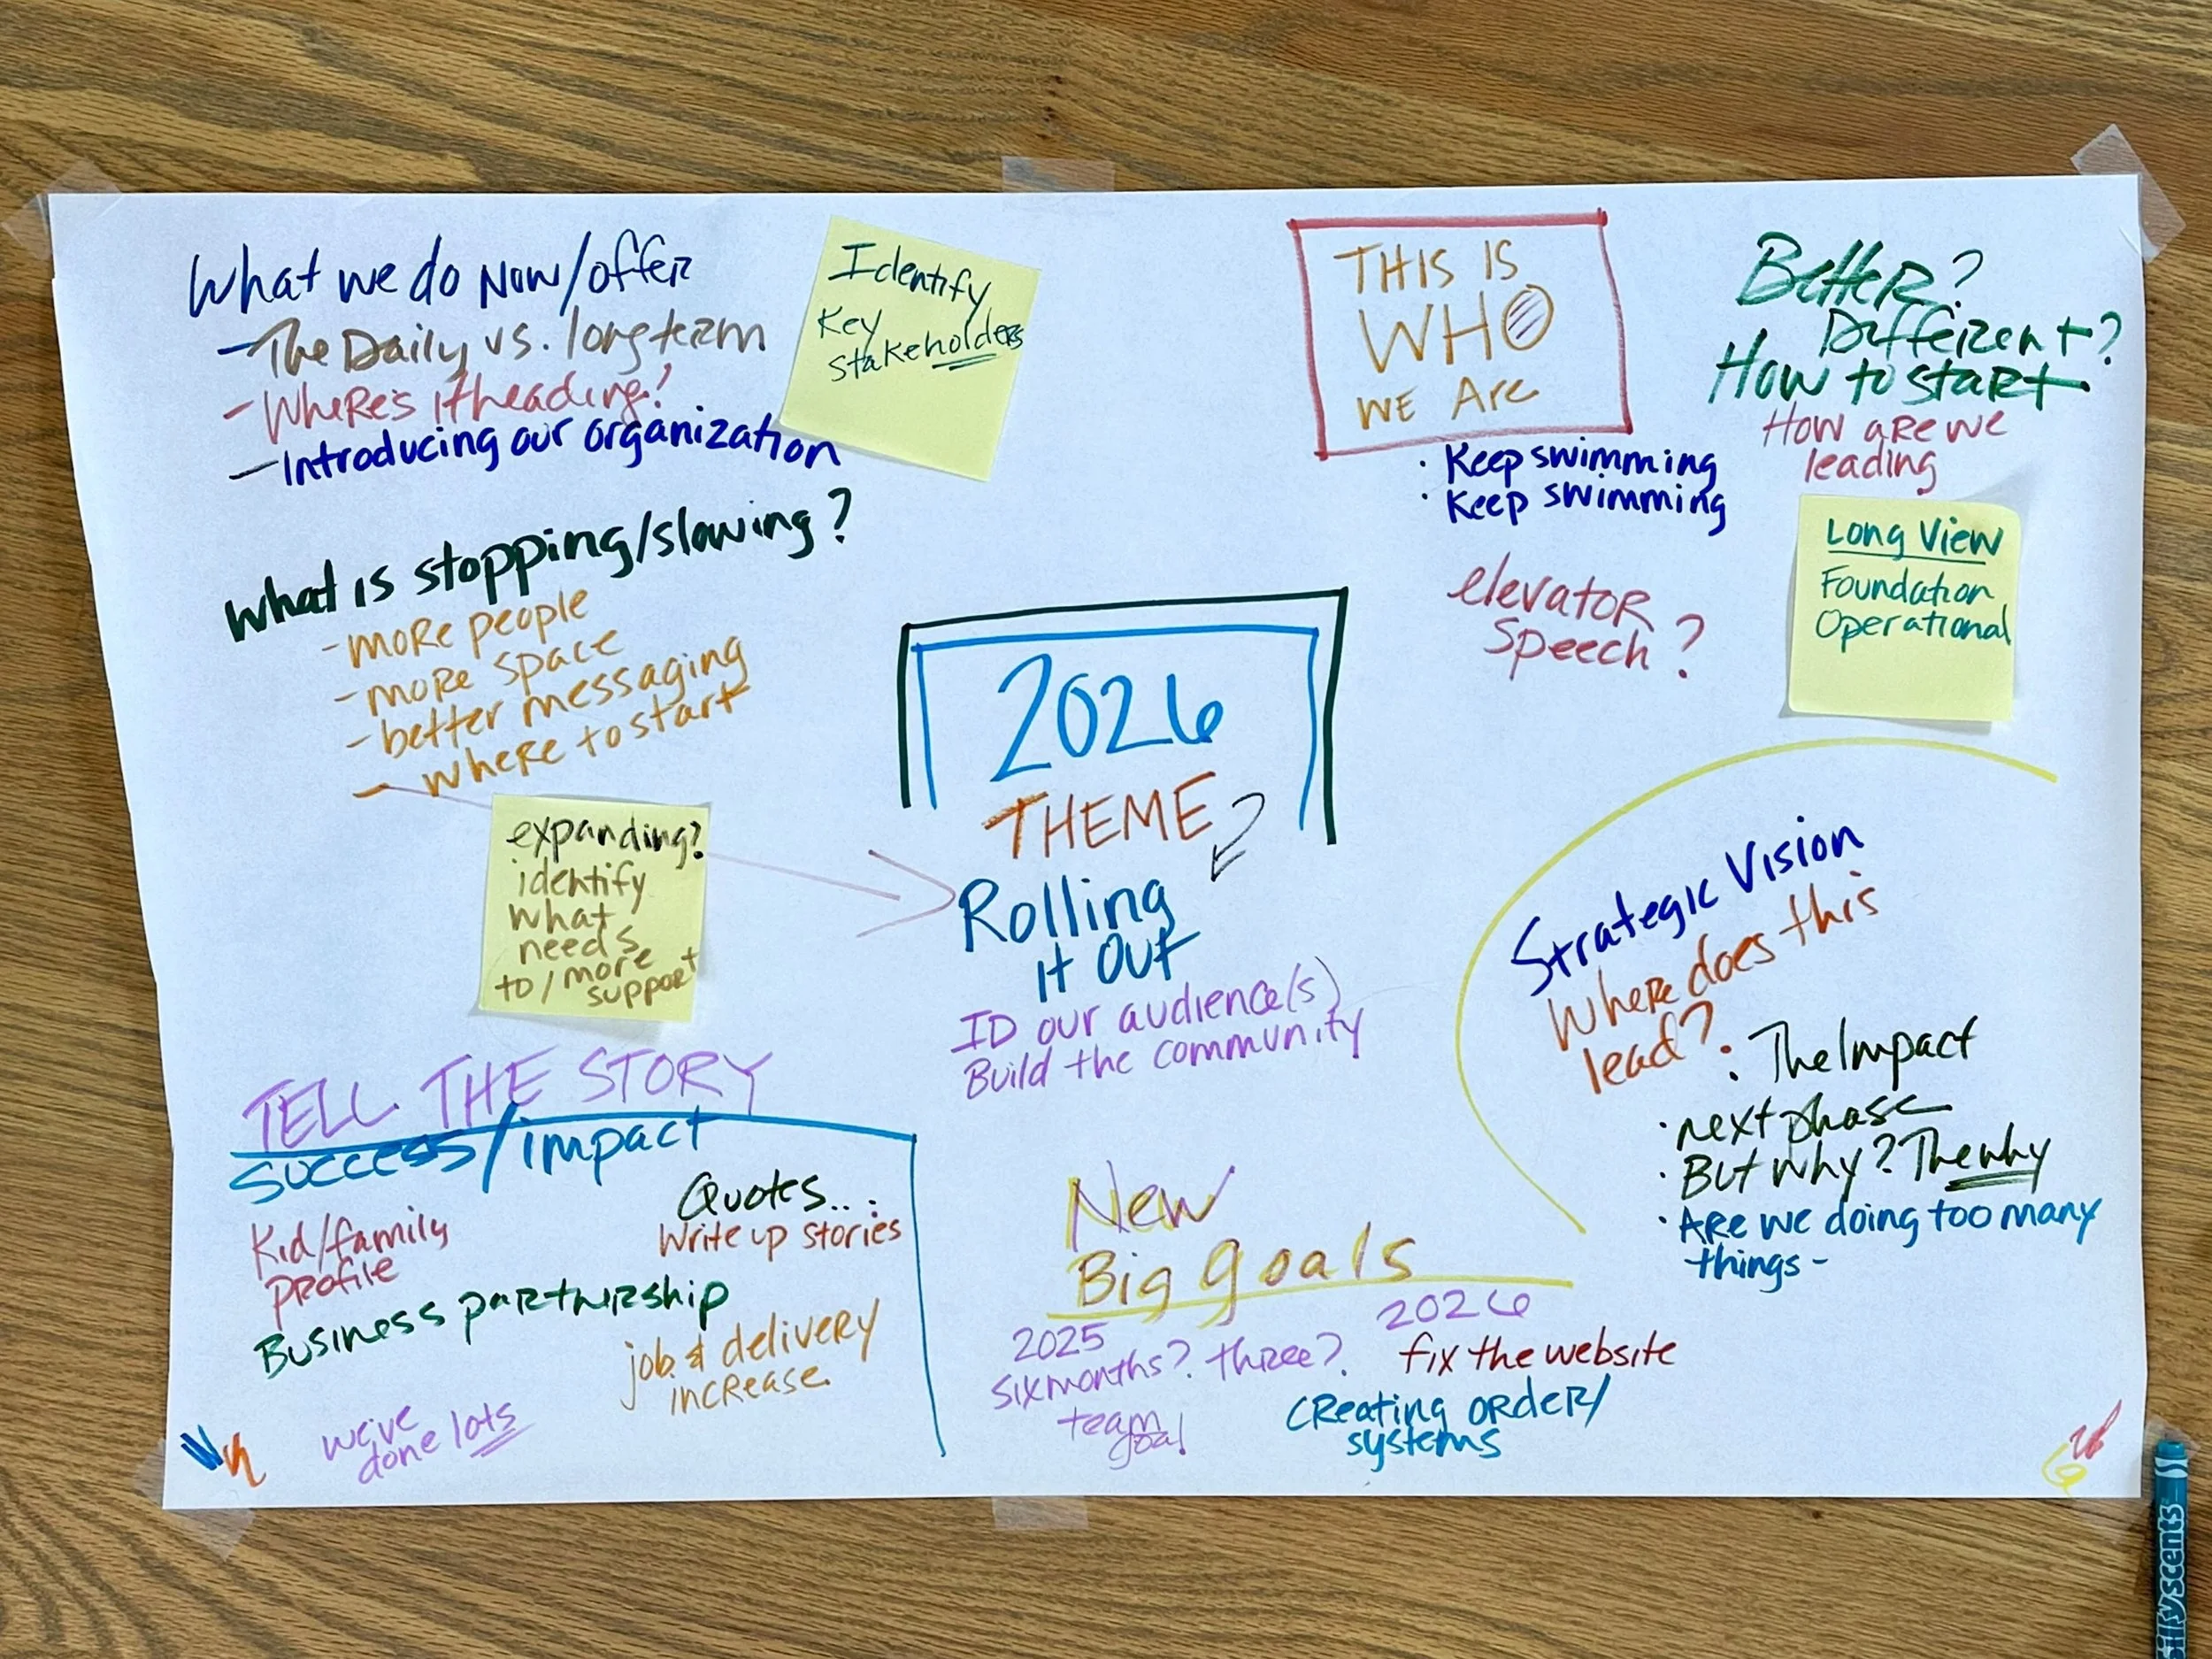 What we do Now/offer
- The Daily vs. long term
- Where's it heading?
- Introducing our organization
Identify
Key
stakeholders
What is stopping/slowing?
- more people
- more space
- better messaging
- where to start
expanding?
identify
what
needs
to/more
support
THIS IS
WHO
WE ARE
• Keep swimming
• Keep swimming
elevator
speech?
Better?
Different?
How to start
How are we
leading
Long View
Foundation
Operational
2026
THEME
Rolling
it Out
ID our audience(s)
Build the community
Strategic Vision
Where does this
lead?
: The Impact
• next phase
• But why? The why
• Are we doing too many
things-
TELL THE STORY
success/impact
Quotes...:
Write up stories
Kid/family
profile
Business partnership
job & delivery
increase
we've
done lots
New
Big goals
2025
six months? three?
team
goal
2026
fix the website
creating order/
systems
illyscents